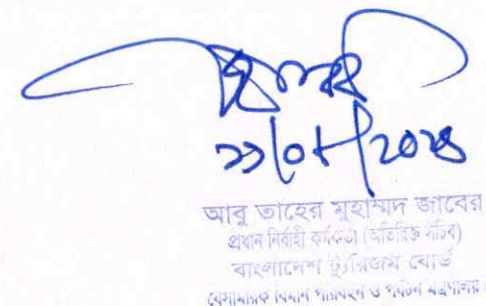 আবু তাহের মুহাম্মদ জাবের
প্রধান নির্বাহী কর্মকর্তা (অতিরিক্ত সচিব)
বাংলাদেশ ট্যুরিজম বোর্ড
বেসামরিক বিমান পরিবহন ও পর্যটন মন্ত্রণালয়